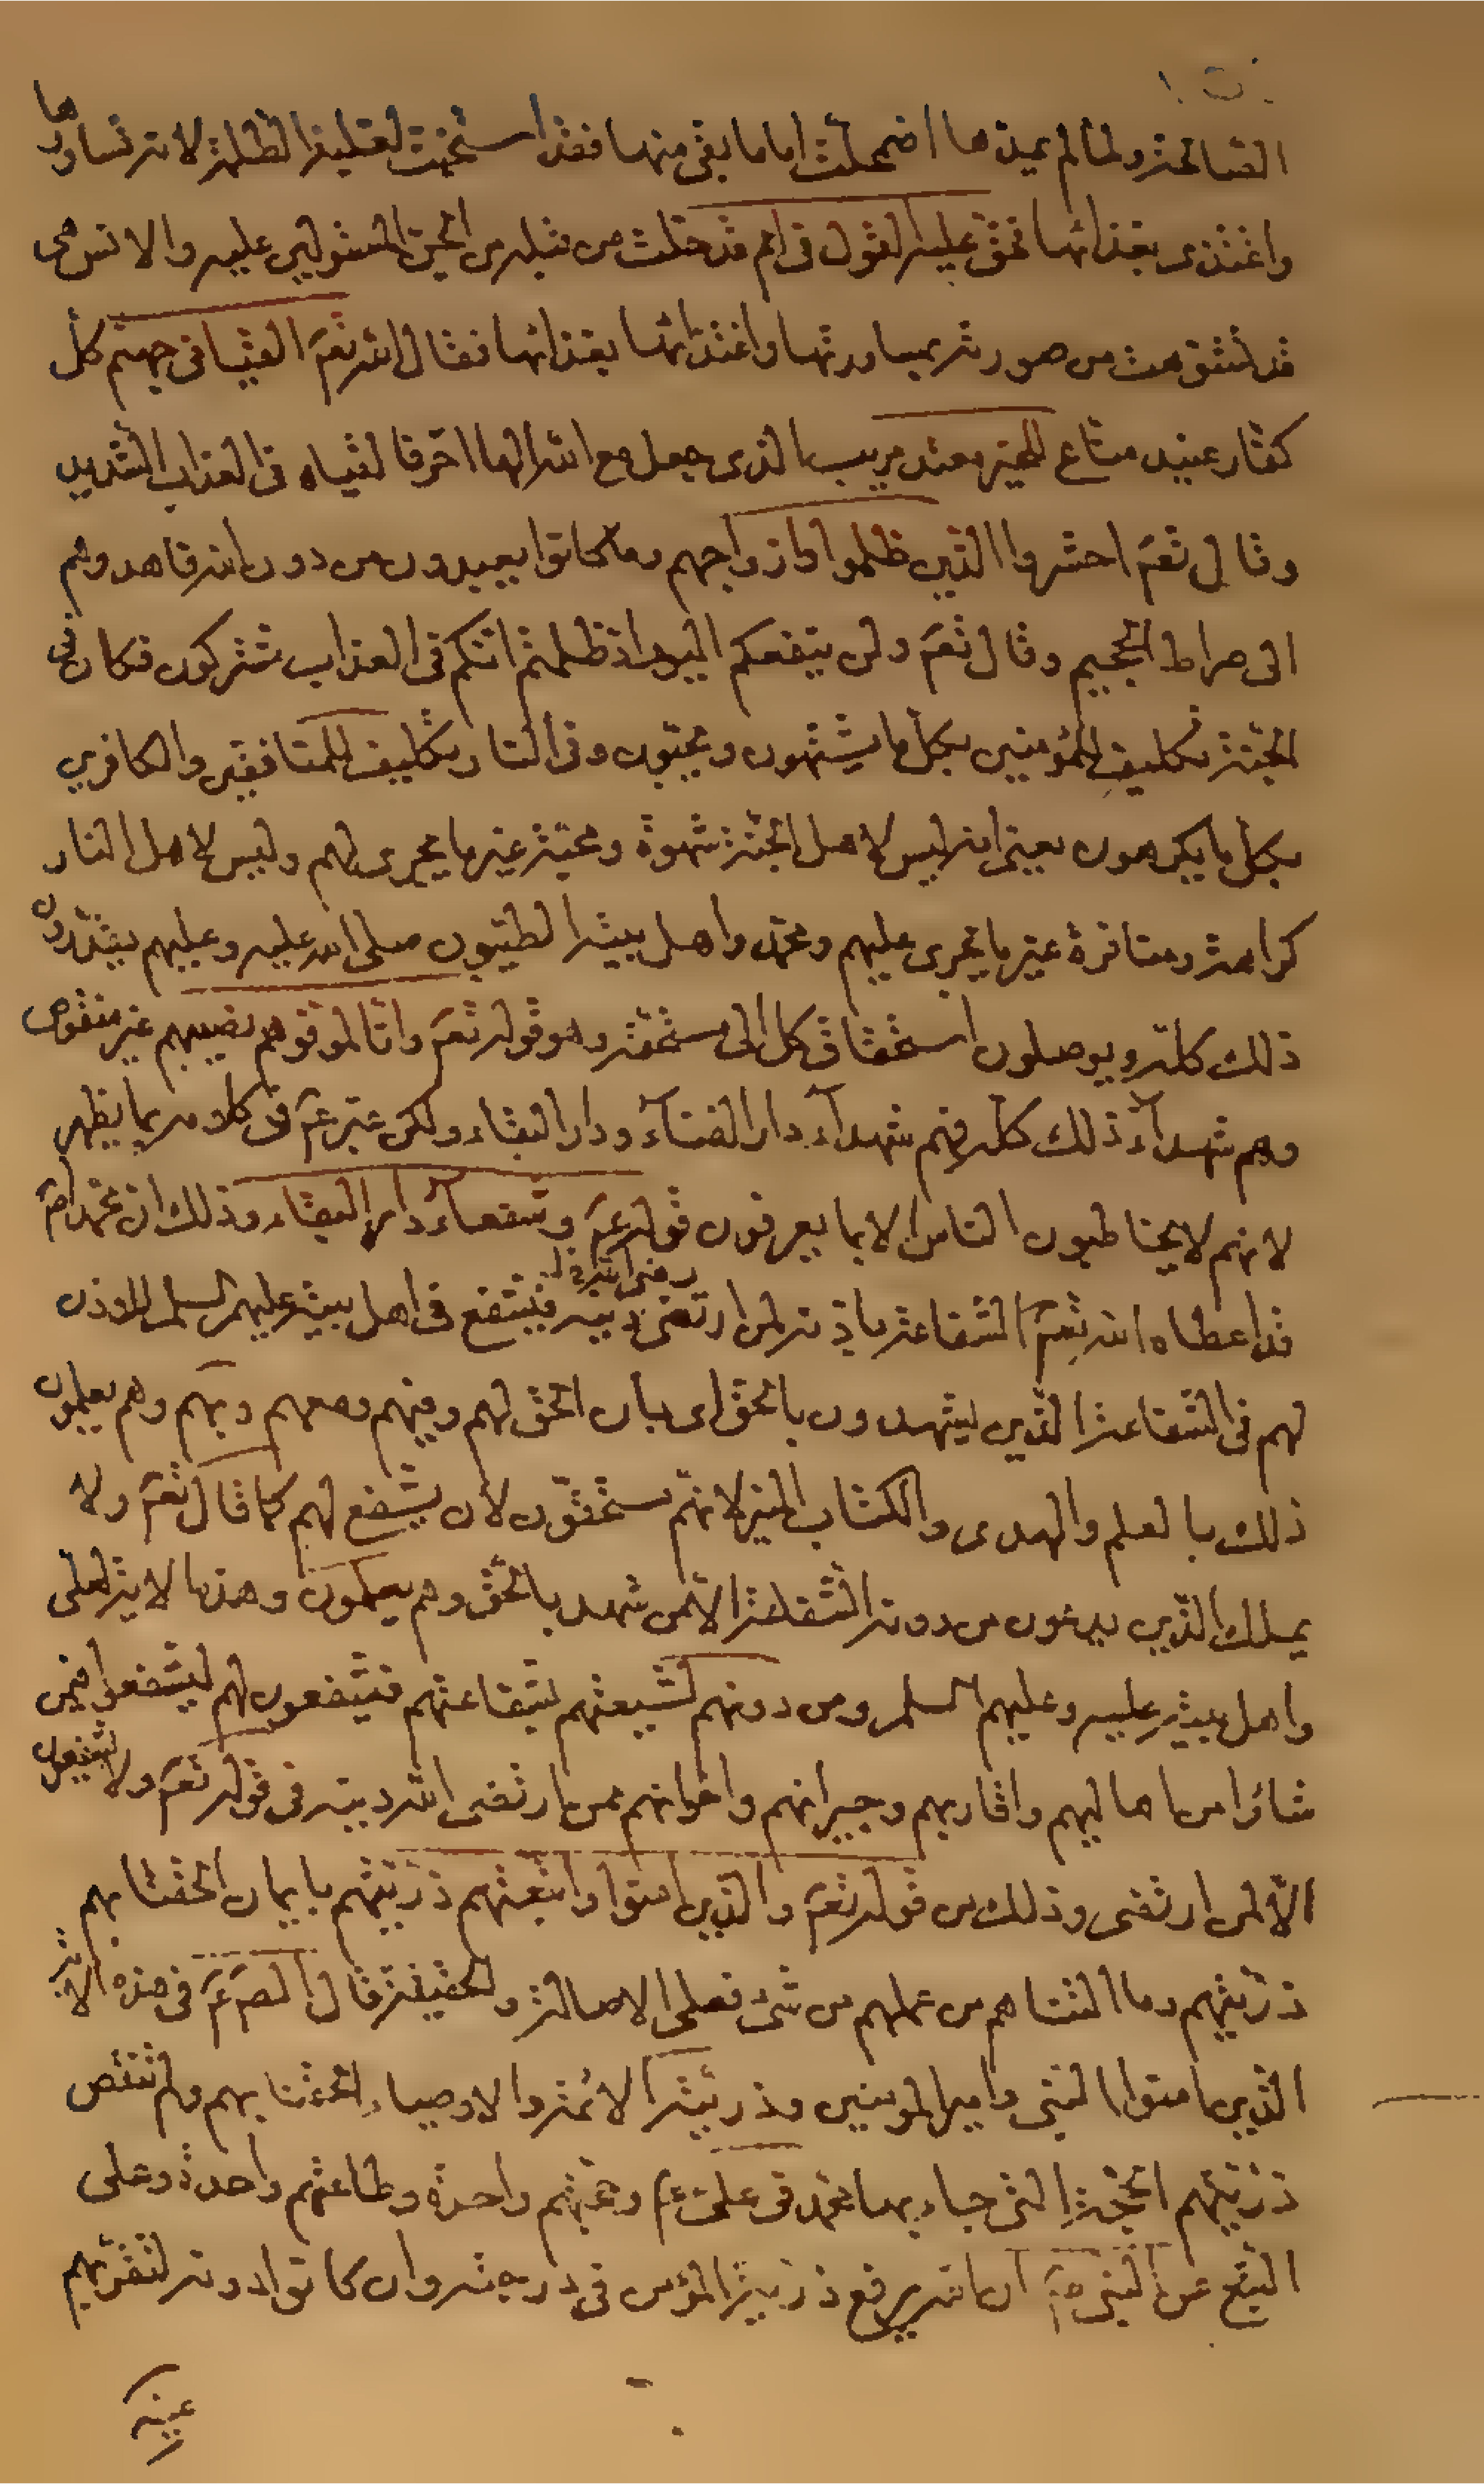 الصالحة ولما لم يمدها اضمحلت اما ما بقى منها فقد استجنت لغلبة الظلمة لانه تساورها
واغتذى بغذائها فحق عليه القول فى امم قد خلت من قبله من الجن المستولين عليه والانس هى
قد اشتقت من صورته بمساورتها واغتذائها بغذائها فقال الله تعم القيا فى جهنم كل
كفار عنيد مناع للخير معتد مريب الذى جعل مع الله الها اخر فالقياه فى العذاب الشديد
وقال تعم احشروا الذين ظلموا وازواجهم وما كانوا يعبدون من دون الله فاهدوهم
الى صراط الجحيم وقال تعم ولن ينفعكم اليوم اذ ظلمتم انكم فى العذاب مشتركون فكان فى
الجنة تكليف للمؤمنين بكل ما يشتهون ويحبون وفى النار تكليف للمنافقين والكافرين
بكل ما يكرهون يعنى انه ليس لاهل الجنة شهوة ومحبة غير ما يجرى لهم وليس لاهل النار
كراهة ومنافرة غير ما يجرى عليهم ومحمد واهل بيته الطيبون صلى الله عليه وعليهم يقدرون
ذلك كله ويوصلون استحقاق كل الى مستحقه وهو قوله تعم وانا لموفوهم نصيبهم غير منقوص
وهم شهداء ذلك كله فهم شهداء دار الفناء ودار البقاء ولكن عبر عم فى كلامه بما يظهر
لانهم لا يخاطبون الناس الا بما يعرفون قوله عم وشفعاء دار البقاء وذلك ان محمدا ص
قد اعطاه الله تعم الشفاعة باذنه لمن ارتضى رضى الله دينه فيشفع فى اهل بيته عليهم السلم للاذن
لهم فى الشفاعة الذين يشهدون بالحق اى بان الحق لهم وفيهم ومعهم وبهم وهم يعلمون
ذلك بالعلم والهدى والكتاب المنير لانهم مستحقون لان يشفع لهم كما قال تعم ولا
يملك الذين يدعون من دونه الشفاعة الا من شهد بالحق وهم يعلمون وهذا
واهل بيته عليه وعليهم السلم ومن دونهم لشيعتهم بشفاعتهم فيشفعون لهم ليشفعوا فيمن
شاؤا من اهاليهم واقاربهم وجيرانهم واخوانهم ممن ارتضى الله دينه فى قوله تعم ولا يشفعون
الا لمن ارتضى وذلك من قوله تعم والذين امنوا واتبعتهم ذريتهم بايمان الحقنا بهم
ذريتهم وما التناهم من عملهم من شئ فعلى الاصالة والحقيقة قال الصم عم فى هذه الاية
الذين امنوا النبى وامير المومنين وذريته الائمة والاوصياء الحقنا بهم ولم تنقص
ذريتهم الحجة التى جاء بها محمد فى على عم وحجتهم واحدة وطاعتهم واحدة وعلى
التبع عن النبى ص ان الله يرفع ذرية المؤمن فى درجته وان كانوا دونه لتقر بهم
عينه